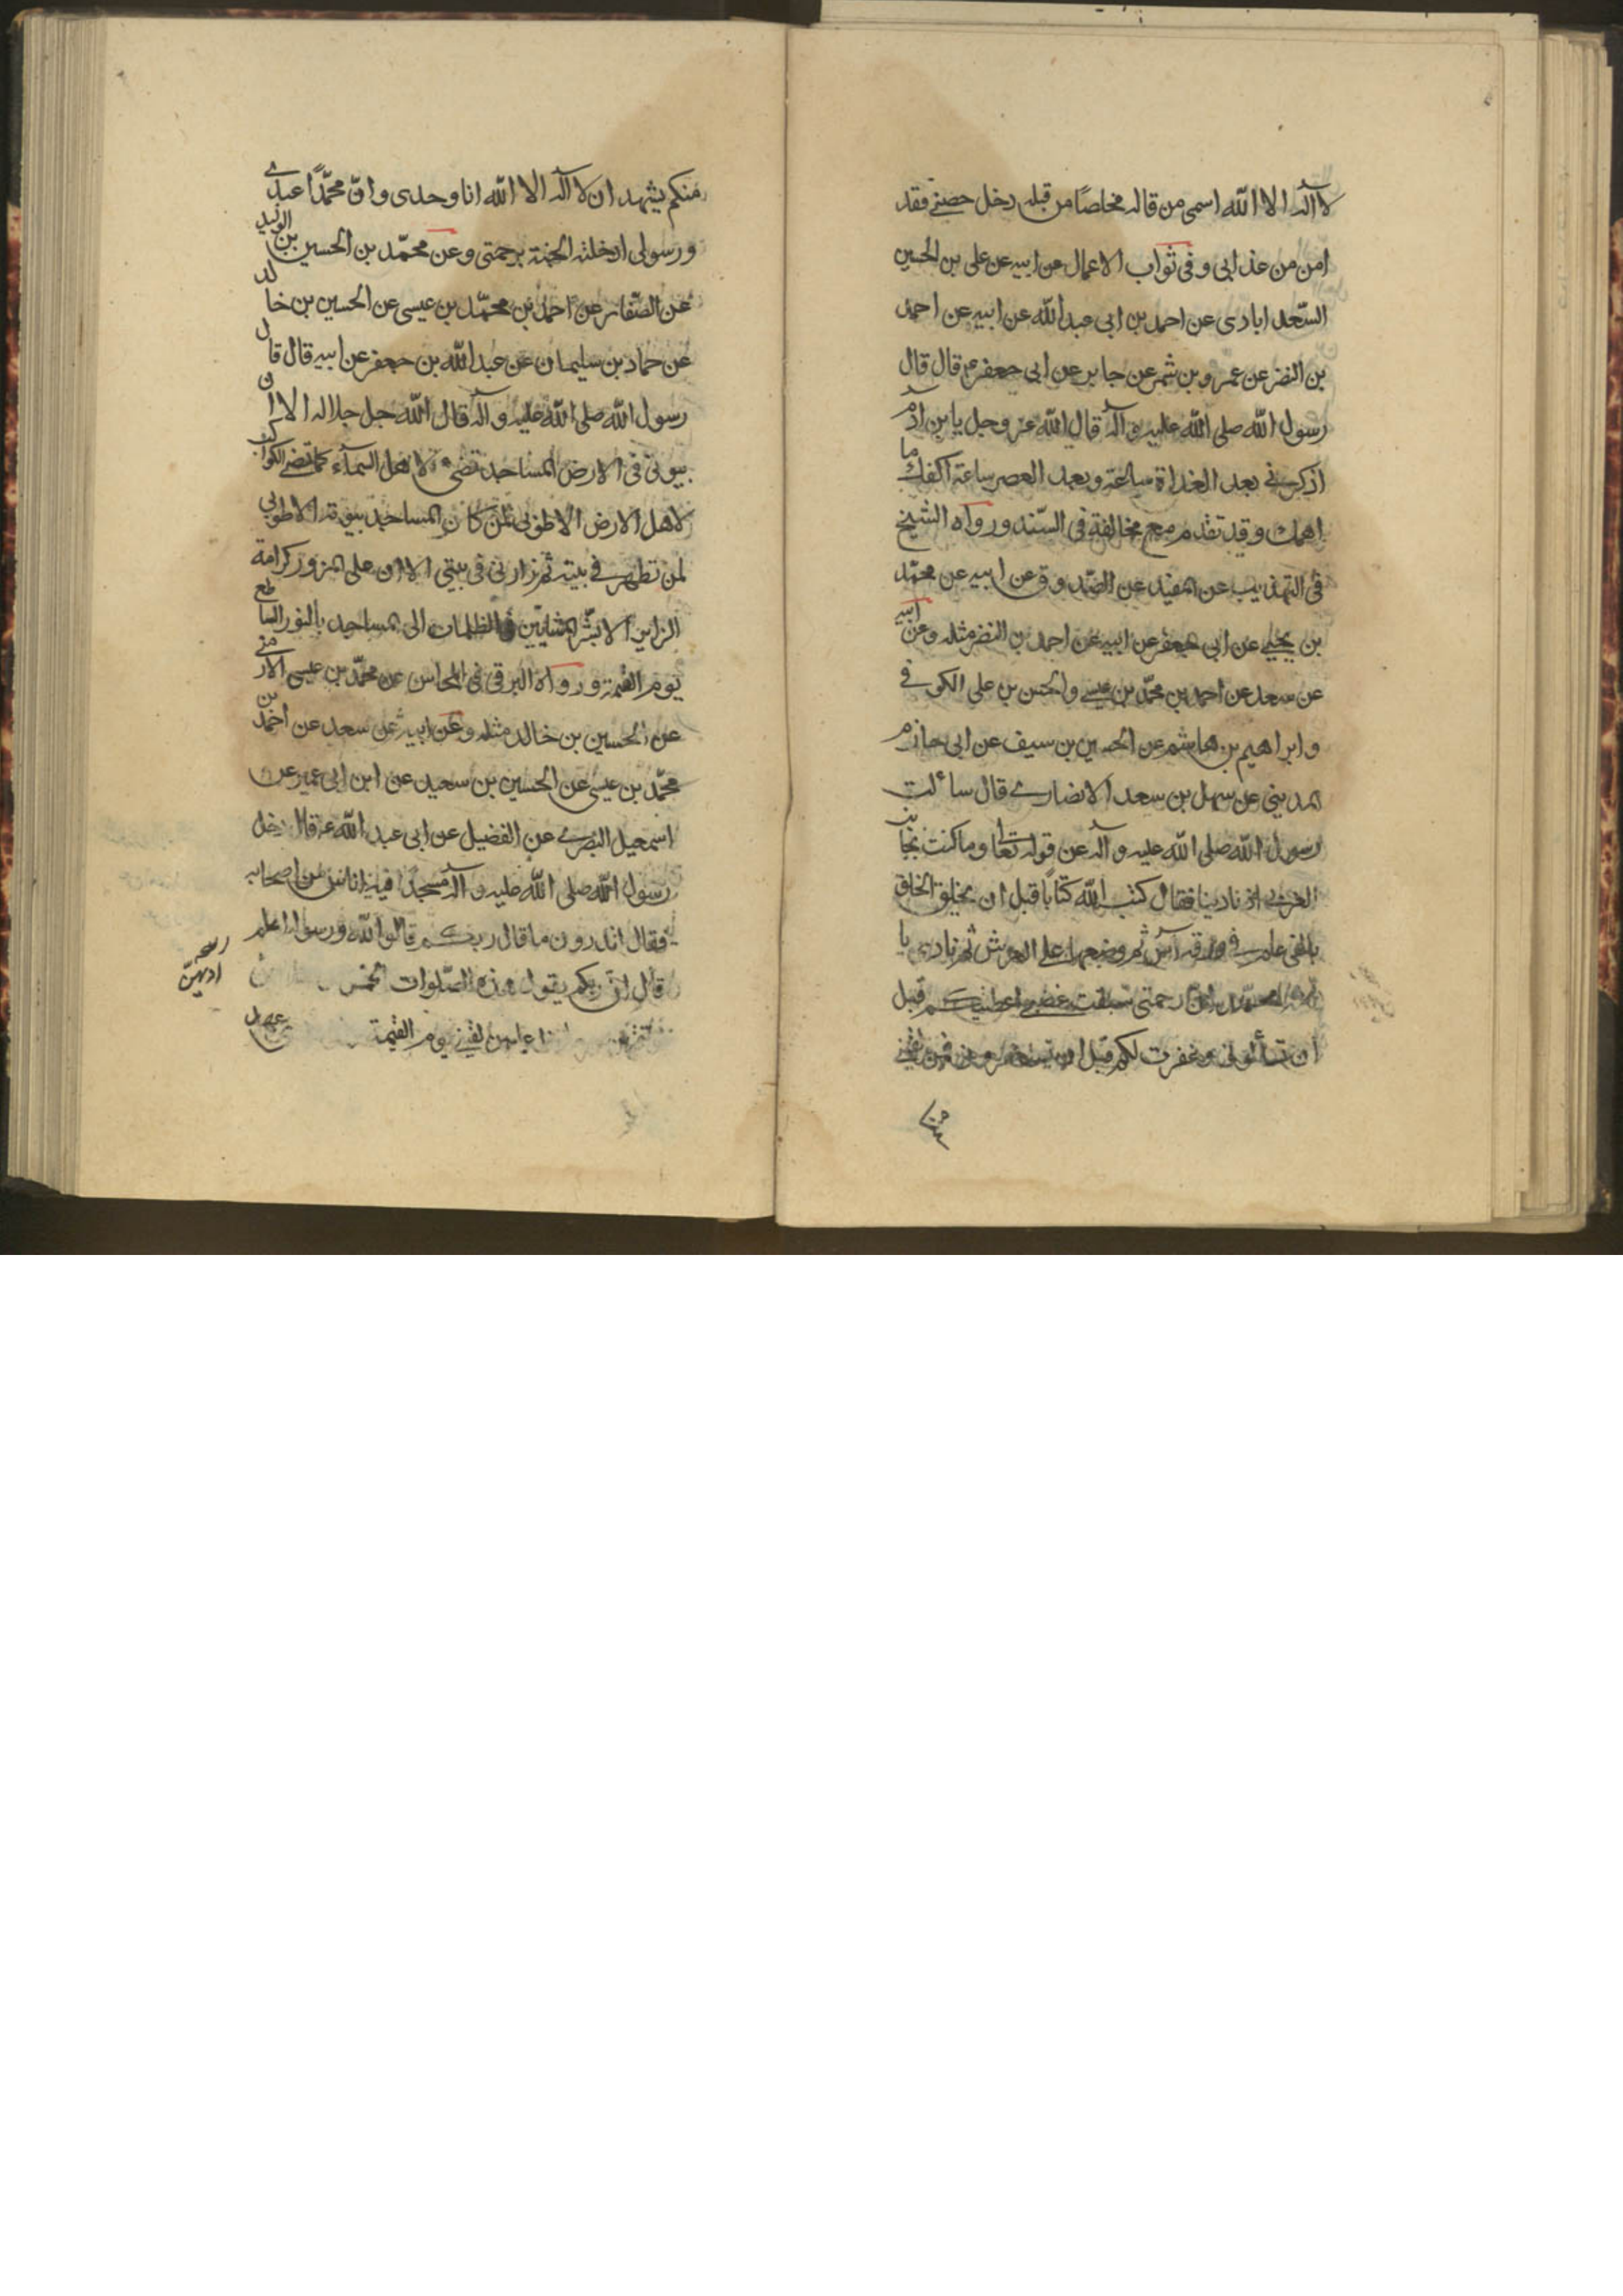 لا آله الا الله اسمى من قاله مخلصًا من قبله دخل حصنى فقد
امن من عذابى وفى ثواب الاعمال عن ابيه عن على بن الحسين
السّعد ابادى عن احمد بن ابى عبد الله عن ابيه عن احمد
بن النضر عن عمرو بن شمر عن جابر عن ابى جعفر ع قال قال
رسول الله صلى الله عليه وآله قال الله عز وجل يا بن ادم
اذكرنى بعد الغداة ساعة وبعد العصر ساعة اكفك ما
اهمك وقد تقدم مع مخالفة فى السّند ورواه الشيخ
فى التهذيب عن المفيد عن الصّدوق عن ابيه عن محمّد
بن يحيى عن ابى جعفر عن ابيه عن احمد بن النضر مثله وعن ابيه
عن سعد عن احمد بن محمّد بن عيسى والحسن بن على الكوفى
وابراهيم بن هاشم عن الحسين بن سيف عن ابى حازم
المدينى عن سهل بن سعد الانصارى قال سألت
رسول الله صلى الله عليه وآله عن قوله تعالى وما كنت بجانب
الغربى اذ نادينا فقال كتب الله كتابًا قبل ان يخلق الخلق
بالفى عام فى ورقة آس ثم وضعها على العرش ثم نادى يا
امة محمّد ان رحمتى سبقت غضبى اعطيتكم قبل
ان تسألونى وغفرت لكم قبل ان تستغفرونى فمن لقينى
منكم
منكم يشهد ان لا آله الا الله انا وحدى وانّ محمّدًا عبدى
ورسولى ادخلته الجنة برحمتى وعن محمّد بن الحسين بن الوليد
عن الصّفار عن احمد بن محمّد بن عيسى عن الحسين بن خالد
عن حماد بن سليمان عن عبد الله بن جعفر عن ابيه قال قال
رسول الله صلى الله عليه وآله قال الله جل جلاله الا ان
بيوتى فى الارض المساجد تضىء لاهل السمآء كما تضىء الكواكب
لاهل الارض الا طوبى لمن كان المساجد بيوته الا طوبى
لمن تطهر فى بيته ثم زارنى فى بيتى الا ان على المزور كرامة
الزاير الا بشّر المشايين فى الظلمات الى المساجد بالنور الساطع
يوم القيمة ورواه البرقى فى المحاسن عن محمّد بن عيسى الارمنى
عن الحسين بن خالد مثله وعن ابيه عن سعد عن احمد بن
محمّد بن عيسى عن الحسين بن سعيد عن ابن ابى عمير عن
اسمعيل البصرى عن الفضيل عن ابى عبد الله ع قال دخل
رسول الله صلى الله عليه وآله مسجدًا فيه اناس من اصحابه
فقال اتدرون ما قال ربكم قالوا الله ورسوله اعلم
قال انّ ربكم يقول هذه الصّلوات الخمس
لقينى يوم القيمة
عهد